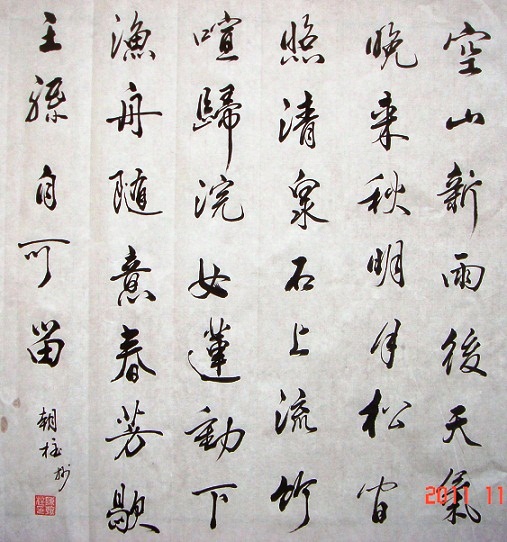 空山新雨後天氣
晚来秋明月松间
照清泉石上流竹
喧歸浣女蓮動下
漁舟随意春芳歇
王孫自可留
朝柱抄
2011 11